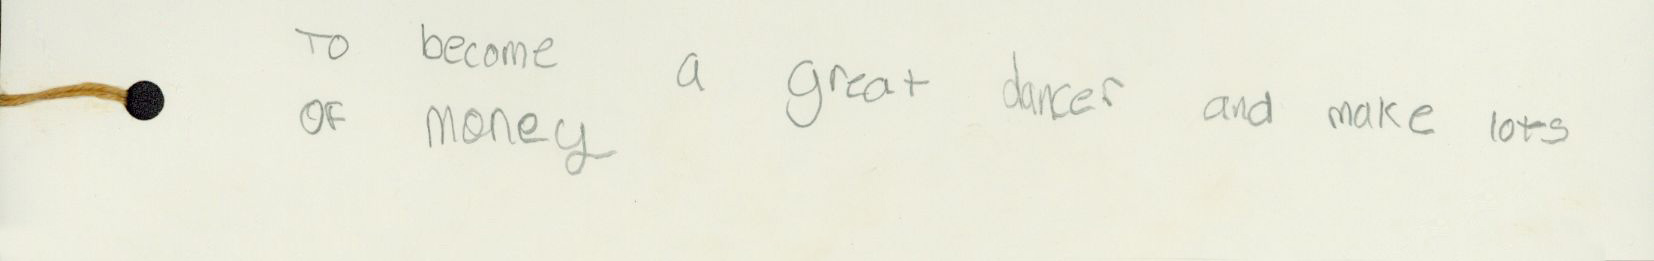 To become a great dancer and make lots
OF money